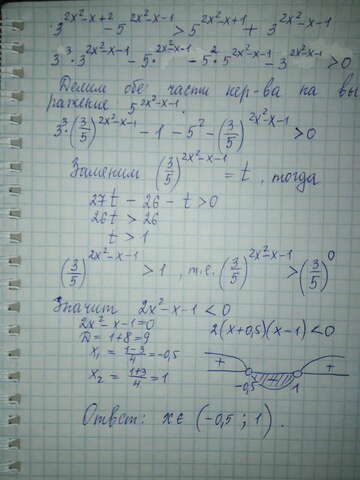 3^(2x²-x+2) - 5^(2x²-x-1) > 5^(2x²-x+1) + 3^(2x²-x-1)
3³·3^(2x²-x-1) - 5·5^(2x²-x-1) - 5²·5^(2x²-x-1) - 3^(2x²-x-1) > 0
Делим обе части нер-ва на вы
ражение 5^(2x²-x-1).
3³·(3/5)^(2x²-x-1) - 1 - 5² - (3/5)^(2x²-x-1) > 0
Заменим (3/5)^(2x²-x-1) = t, тогда
27t - 26 - t > 0
26t > 26
t > 1
(3/5)^(2x²-x-1) > 1, т.е. (3/5)^(2x²-x-1) > (3/5)^0
Значит 2x²-x-1 < 0
2x²-x-1=0
D = 1+8 = 9
x₁ = (1-3)/4 = -0,5
x₂ = (1+3)/4 = 1
2(x+0,5)(x-1) < 0
+ + 
-0,5 1
Ответ: x∈ (-0,5 ; 1).